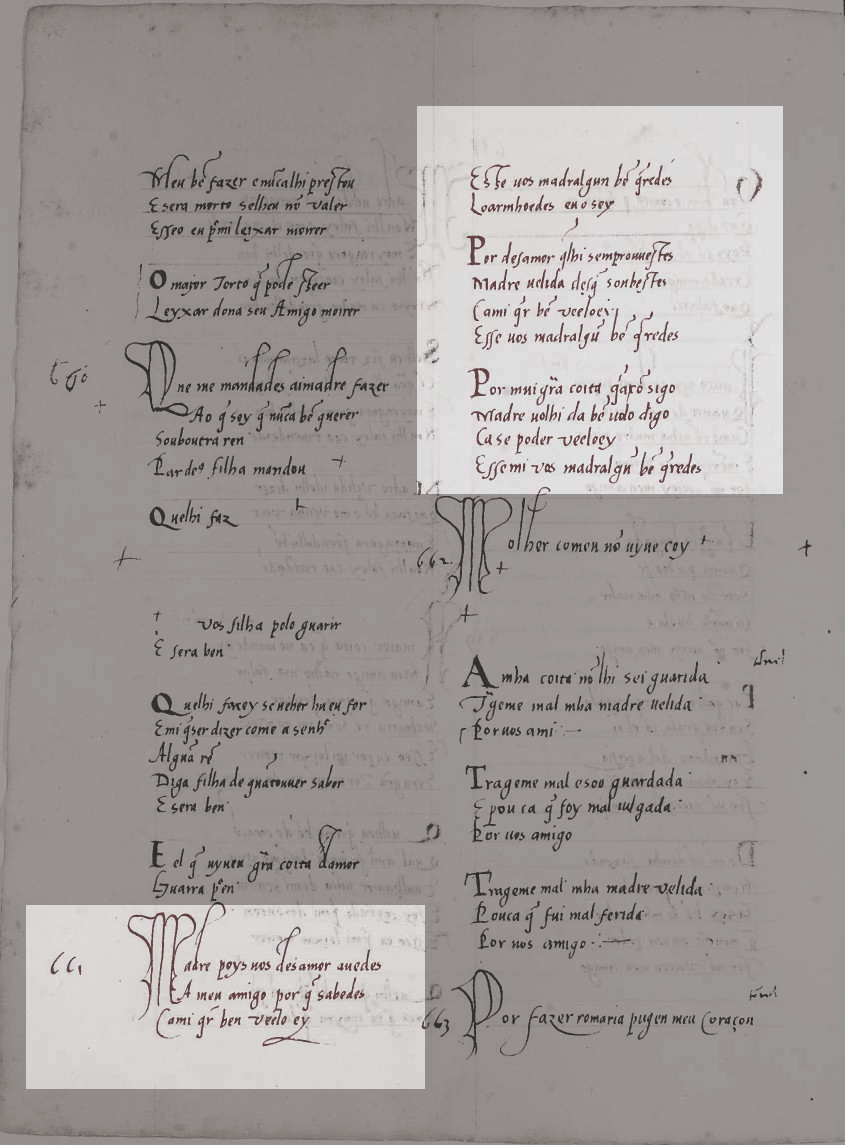 Meu bẽ fazer e nũcalhi prestou
E sera morto selheu nõ valer
Esseo eu p̃mi leyxar morrer
O mayor Torto q̃ pode seer
Leyxar dona seu Amigo morrer
660
Que me mandades aimadre fazer
Ao q̃ sey q̃ nũca bẽ querer
Souboutra ren
Par deꝰ filha mandou
Quelhi faz
vos filha polo guarir
E sera ben
Quelhi farey se ueher hu eu for
E mi q̃ser dizer come a senhʳ
Algũa rẽ
Diga filha de quãtouuer sabor
E sera ben
E el q̃ uyueu grã coita damor
Guarra p̃en
661
Madre poys uos desamor auedes
A meu amigo por q̃ sabedes
Cami q̃r ben veelo ey
Esse uos madralgun bẽ q̃redes
Loarmhoedes eu o sey
Por desamor q̃lhi sempr ouuestes
Madre uelida desq̃ soubestes
Cami q̃r bẽ veeloey
Esse uos madralgũ bẽ q̃redes
Por mui grã coita q̃ a cõ sigo
Madre uolhi da bẽ uolo digo
Ca se poder veeloey
Esse mi vos madralgũ bẽ q̃redes
662
Molher comeu nõ uyue coy
A mha coita nõ lhi sei guarida
T̃geme mal mha madre uelida
Por uos ami
Trageme mal e soo guardada
E pou ca q̃ foy mal iulgada
Por uos amigo
Trageme mal mha madre velida
Pouca q̃ fui mal ferida
Por uos amigo
663
Por fazer romaria pugen meu Coraçon